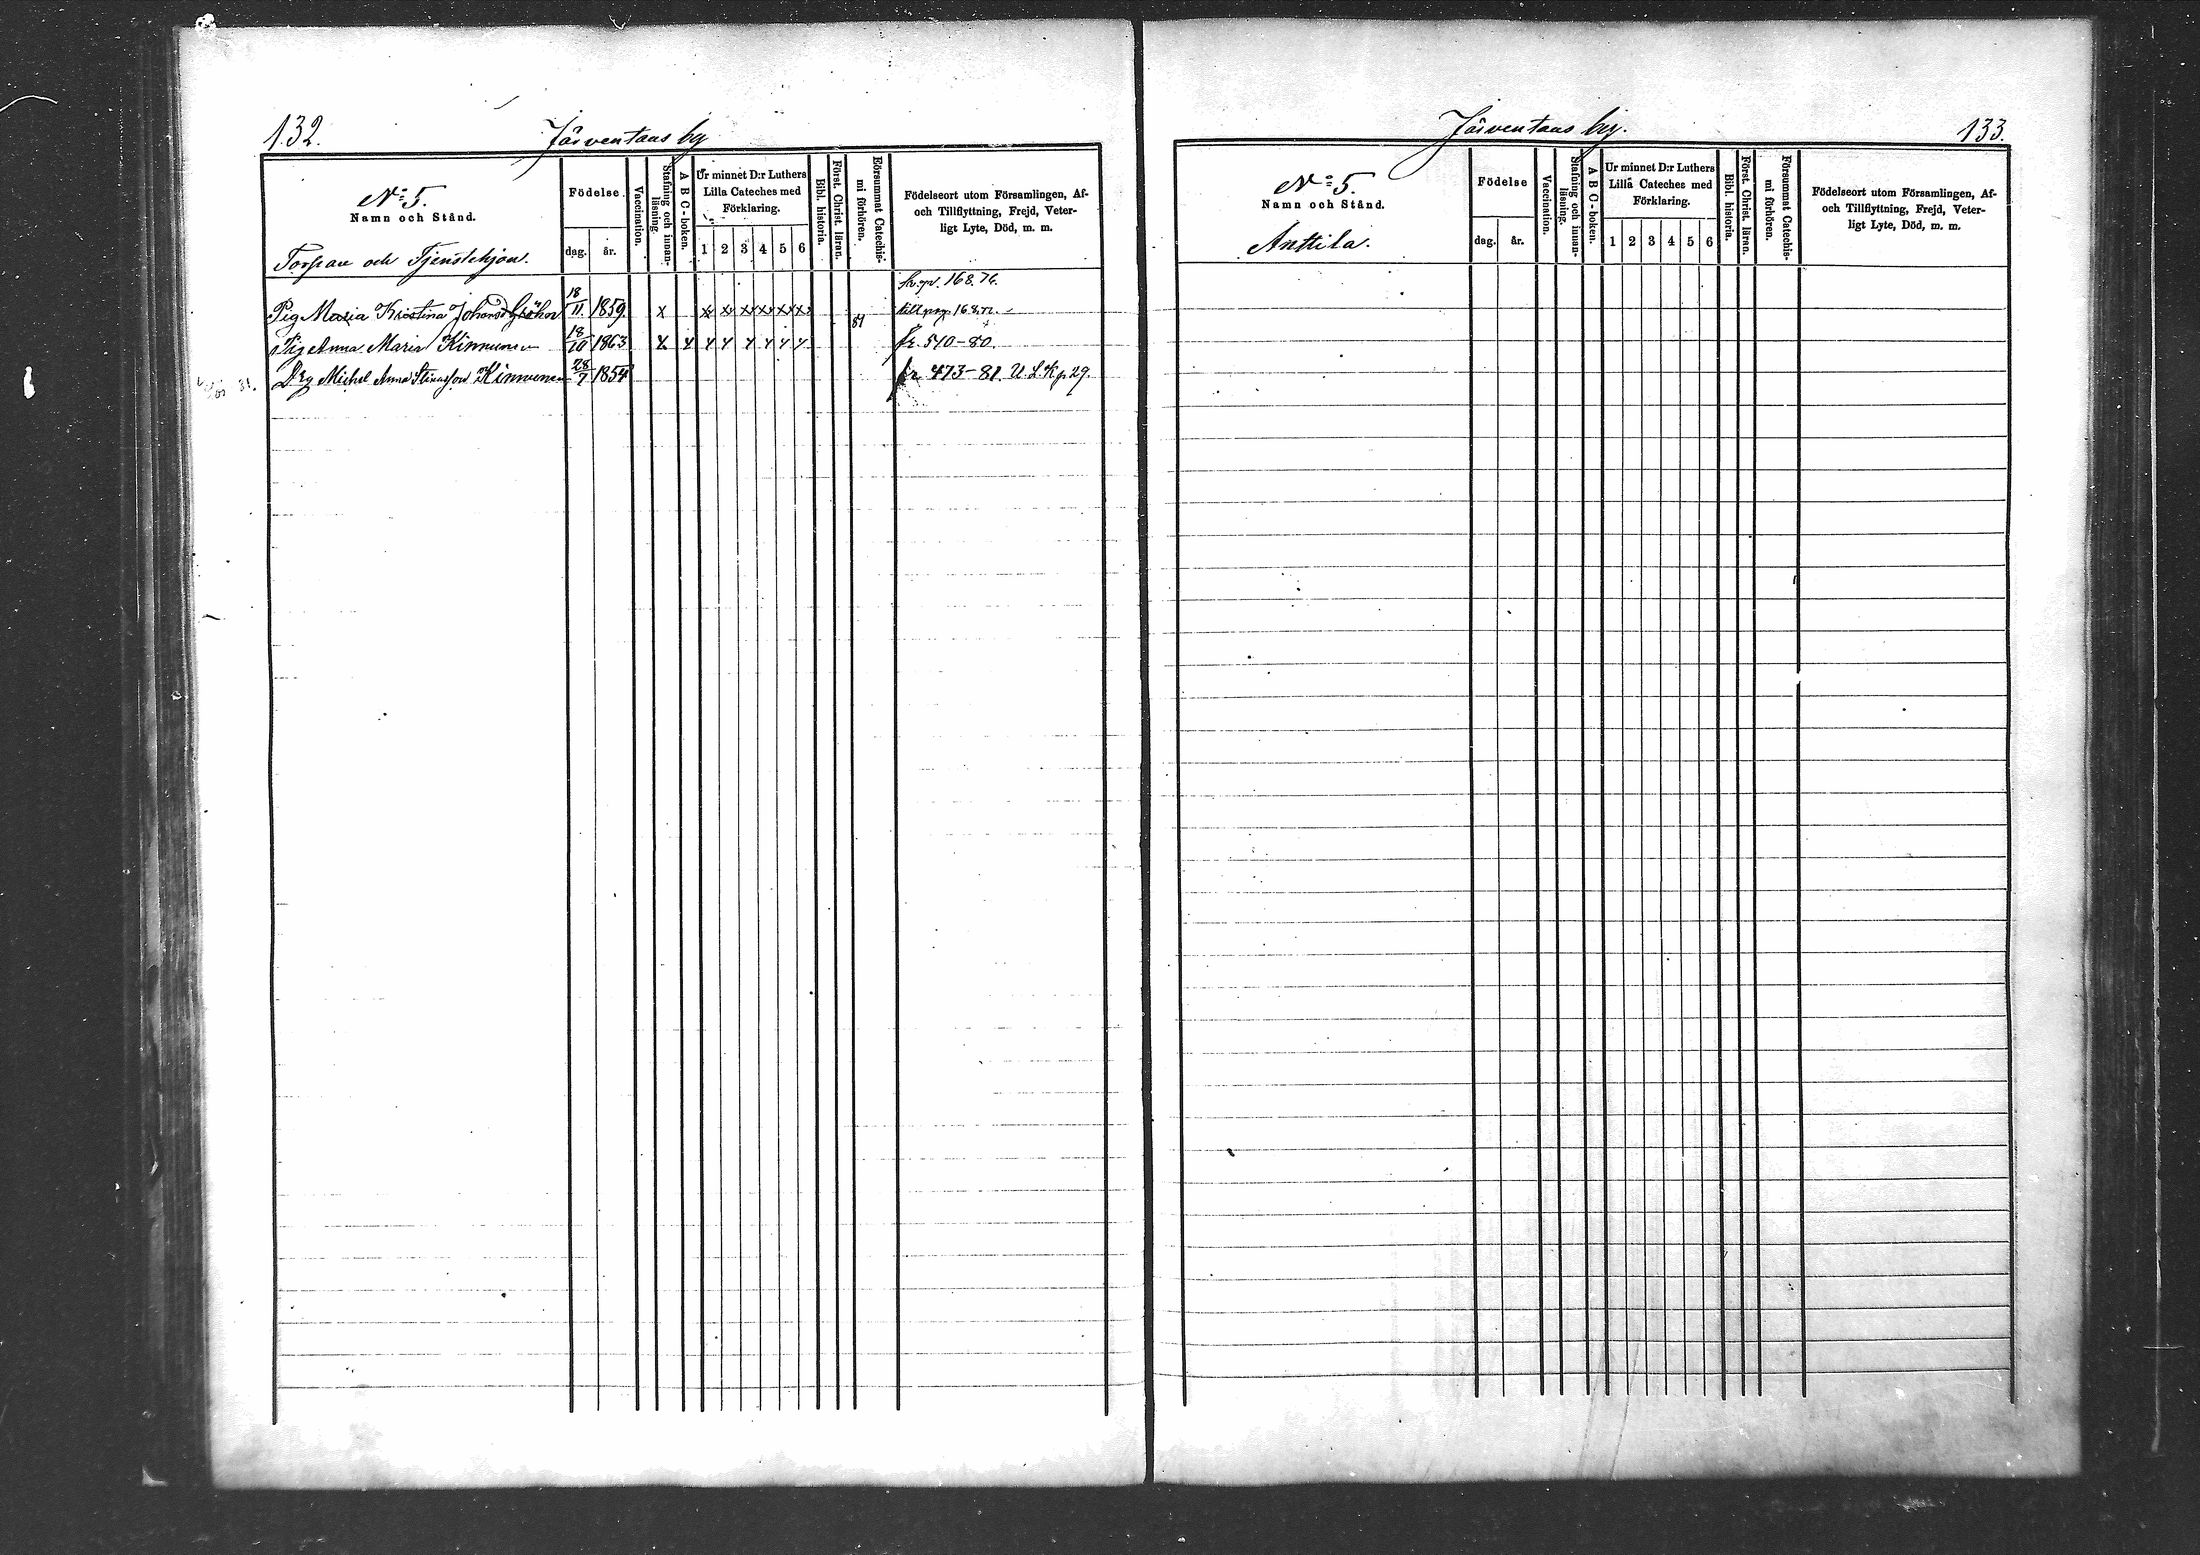 132. Järventaus by
N:o 5.
Namn och Stånd.
Torpare och Tjenstehjon.
Födelse.
dag. år.
Vaccination.
Stafning och innan-
läsning.
A B C-boken.
Ur minnet D:r Luthers
Lilla Cateches med
Förklaring.
1 2 3 4 5 6
Bibl. historia.
Först. Christ. läran.
Försummat Catechis-
mi förhören.
Födelseort utom Församlingen, Af-
och Tillflyttning, Frejd, Veter-
ligt Lyte, Död, m. m.
168.76.
Pig Maria Kristina Gröhn 18/11 1859. x x x x x x x till 168.
Pig Anna Maria Kinnunen 18/10 1863 x x x x x x x x 81 fr. 510-80.
Drg Michel Anna Stinasson Kinnunen 28/7 1854 fr. 473-81. U.S.K p 29.
81.
Järventaus by. 133.
N:o 5.
Namn och Stånd.
Anttila.
Födelse
dag. år.
Vaccination.
Stafning och innan-
läsning.
A B C-boken.
Ur minnet D:r Luthers
Lilla Cateches med
Förklaring.
1 2 3 4 5 6
Bibl. historia.
Först. Christ. läran.
Försummat Catechis-
mi förhören.
Födelseort utom Församlingen, Af-
och Tillflyttning, Frejd, Veter-
ligt Lyte, Död, m. m.